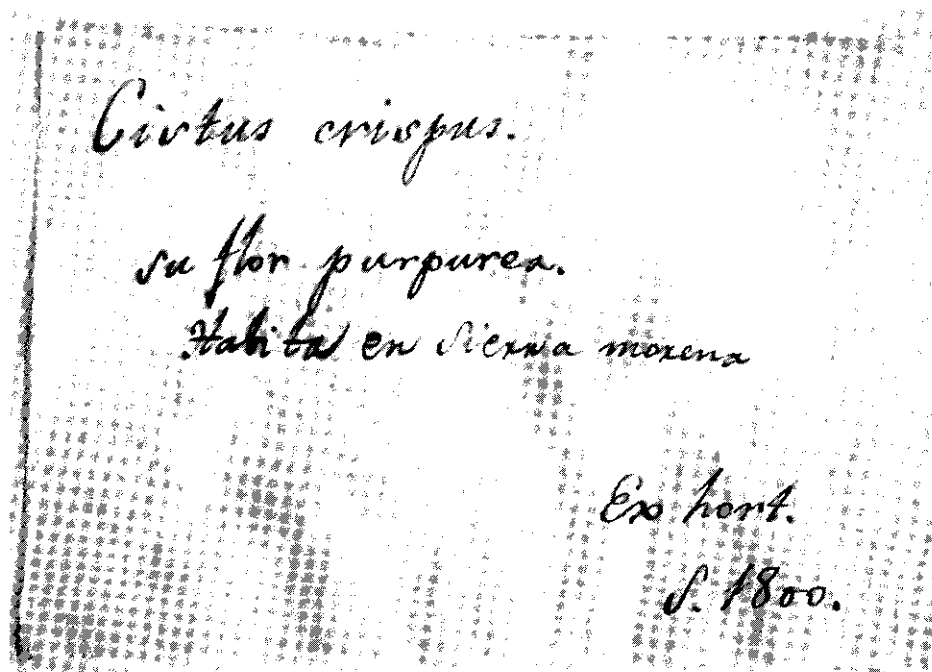 Cistus crispus.
su flor purpurea.
Habita en Sierra morena
Ex hort.
S. 1800.